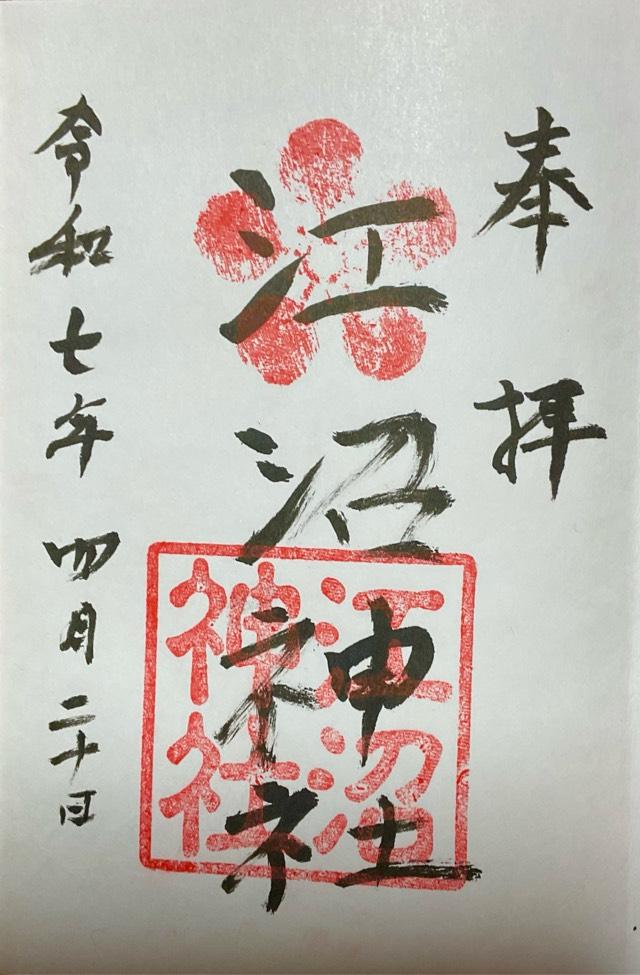 奉拝
江沼神社
江沼
神社
令和七年四月二十日